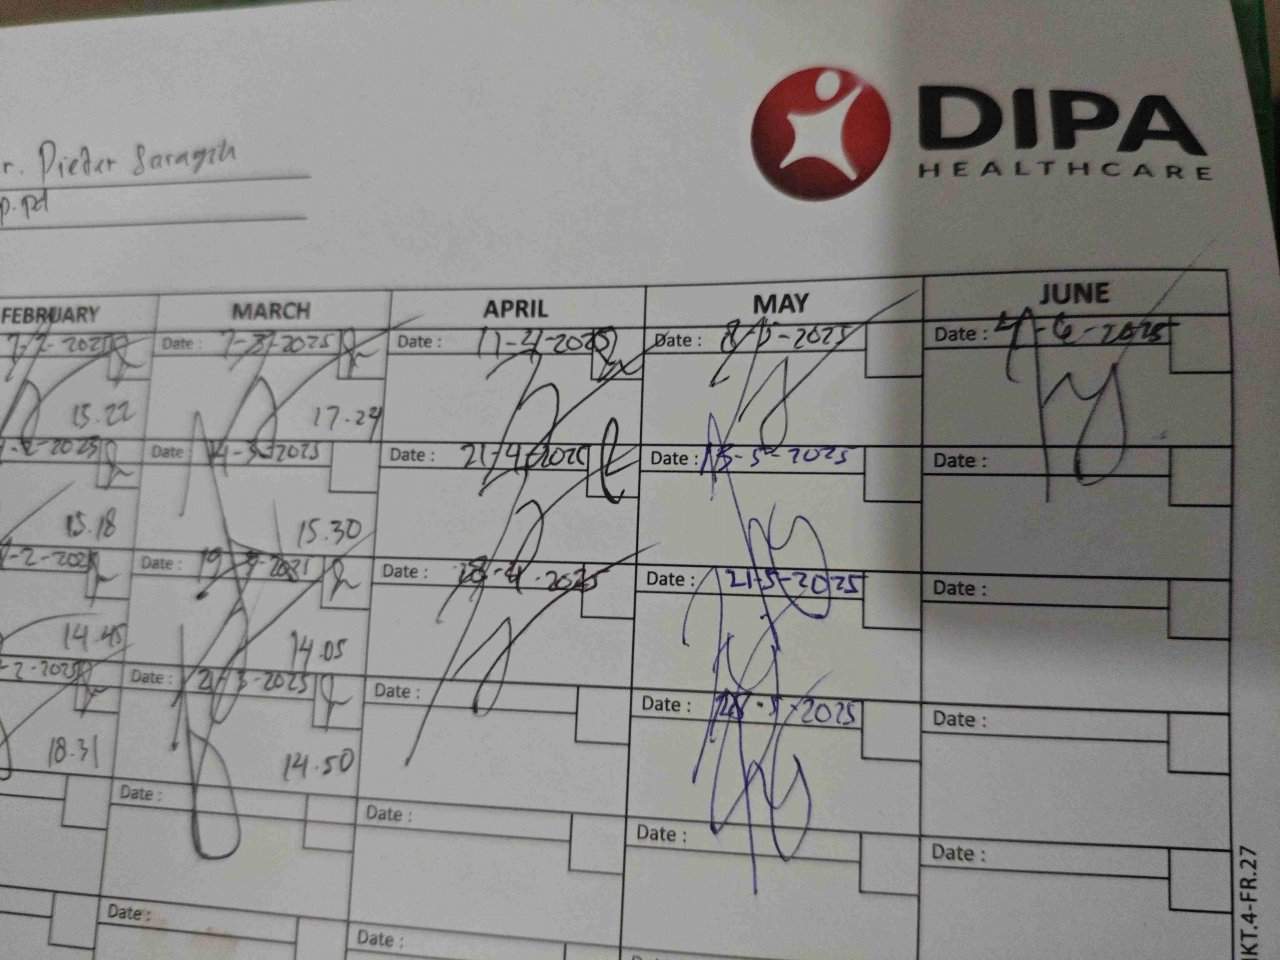 DIPA
HEALTHCARE
r. Pieter Saragih
p.pd
FEBRUARY MARCH APRIL MAY JUNE
7-2-2025 Date : 7-3-2025 Date : 11-4-2025 Date : 8-5-2025 Date : 4-6-2025
15.22 17.24
-2-2025 Date 14-3-2025 Date : 21-4-2025 Date : 15-5-2025 Date :
15.18 15.30
-2-2025 Date : 19-3-2025 Date : 28-4-2025 Date : 21-5-2025 Date :
14.45 14.05
-2-2025 Date : 21-3-2025 Date : Date : 28-5-2025 Date :
18.31 14.50
Date : Date : Date : Date :
Date : Date :
MKT.4-FR.27